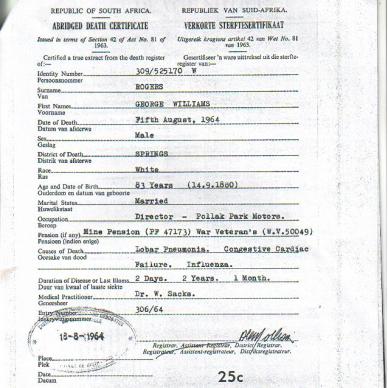 REPUBLIC OF SOUTH AFRICA. REPUBLIEK VAN SUID-AFRIKA.
ABRIDGED DEATH CERTIFICATE VERKORTE STERFTESERTIFIKAAT
Issued in terms of Section 42 of Act No. 81 of 1963. Uitgereik kragtens artikel 42 van Wet No. 81 van 1963.
Certified a true extract from the death register of:— Gesertifiseer 'n ware uittreksel uit die sterfteregister van:—
Identity Number 309/525170 W
Persoonsnommer
Surname ROGERS
Van
First Names GEORGE WILLIAMS
Voorname
Date of Death Fifth August, 1964
Datum van afsterwe
Sex Male
Geslag
District of Death SPRINGS
Distrik van afsterwe
Race White
Ras
Age and Date of Birth 83 Years (14.9.1880)
Ouderdom en datum van geboorte
Marital Status Married
Huwelikstaat
Occupation Director - Pollak Park Motors.
Beroep
Pension (if any) Mine Pension (PF 47173) War Veteran's (W.V.50049)
Pensioen (indien enige)
Causes of Death Lobar Pneumonia. Congestive Cardiac
Oorsake van dood Failure. Influenza.
Duration of Disease or Last Illness 2 Days. 2 Years. 1 Month.
Duur van kwaal of laaste siekte
Medical Practitioner Dr. W. Sacks.
Geneesheer
Entry Number 306/64
Inskrywingsnommer
18-8-1964
Registrar, Assistant Registrar, District Registrar.
Registrateur, Assistent-registrateur, Distriksregistrateur.
Place
Plek
Date
Datum
25c